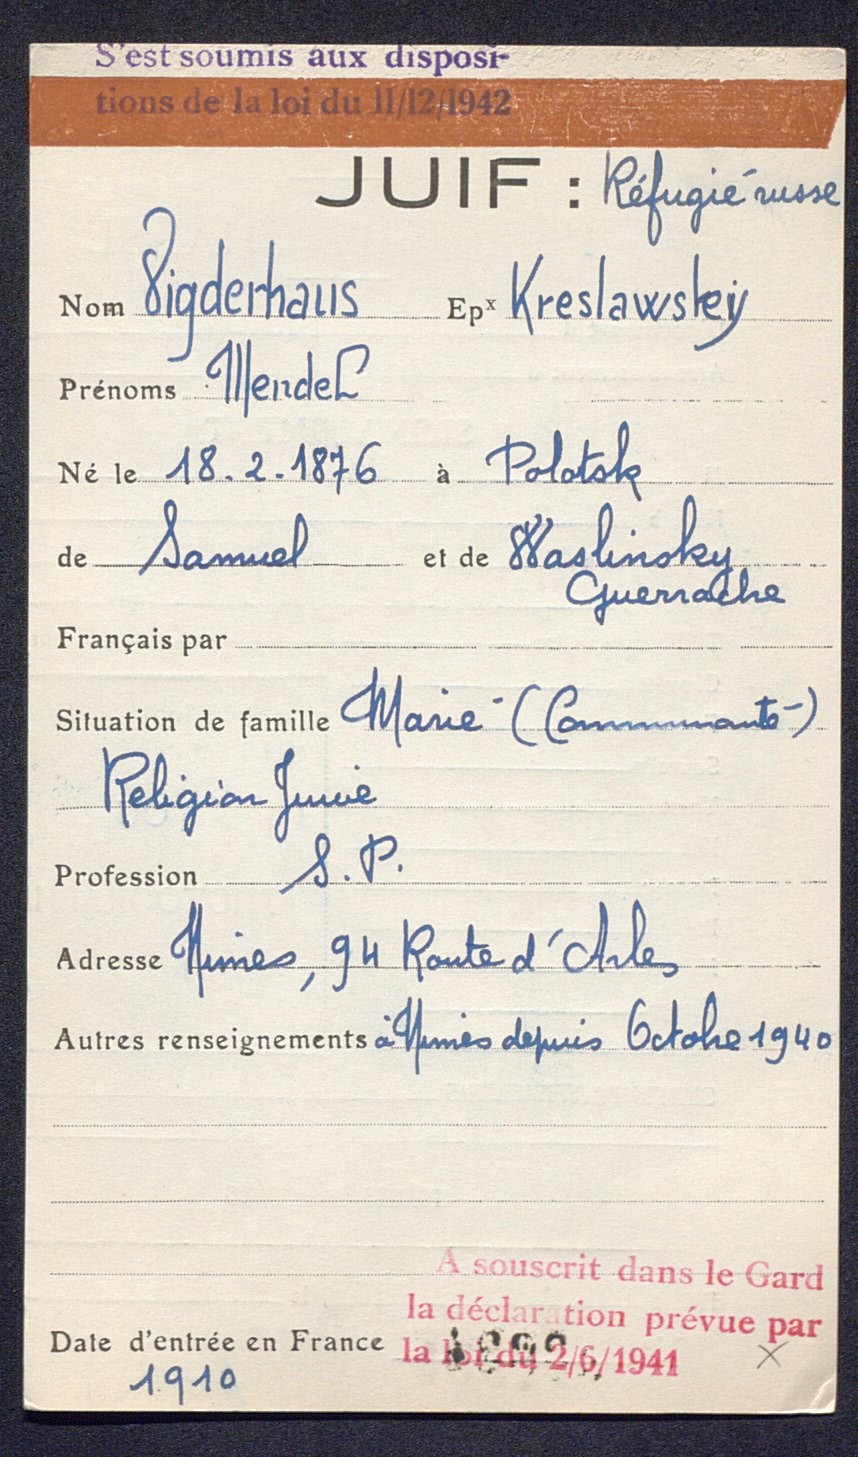 S'est soumis aux disposi-
tions de la loi du 11/12/1942
JUIF : Réfugié russe
Nom Pigderhaus Epx Kreslawsky
Prénoms Mendel
Né le 18.2.1876 à Polotsk
de Samuel et de Waslinsky
Guerrache
Français par
Situation de famille Marié (Communauté)
Religion Juive
Profession S.P.
Adresse Nimes, 94 Route d'Arles
Autres renseignements à Nimes depuis Octobre 1940
A souscrit dans le Gard
la déclaration prévue par
Date d'entrée en France la loi du 2/6/1941
1910